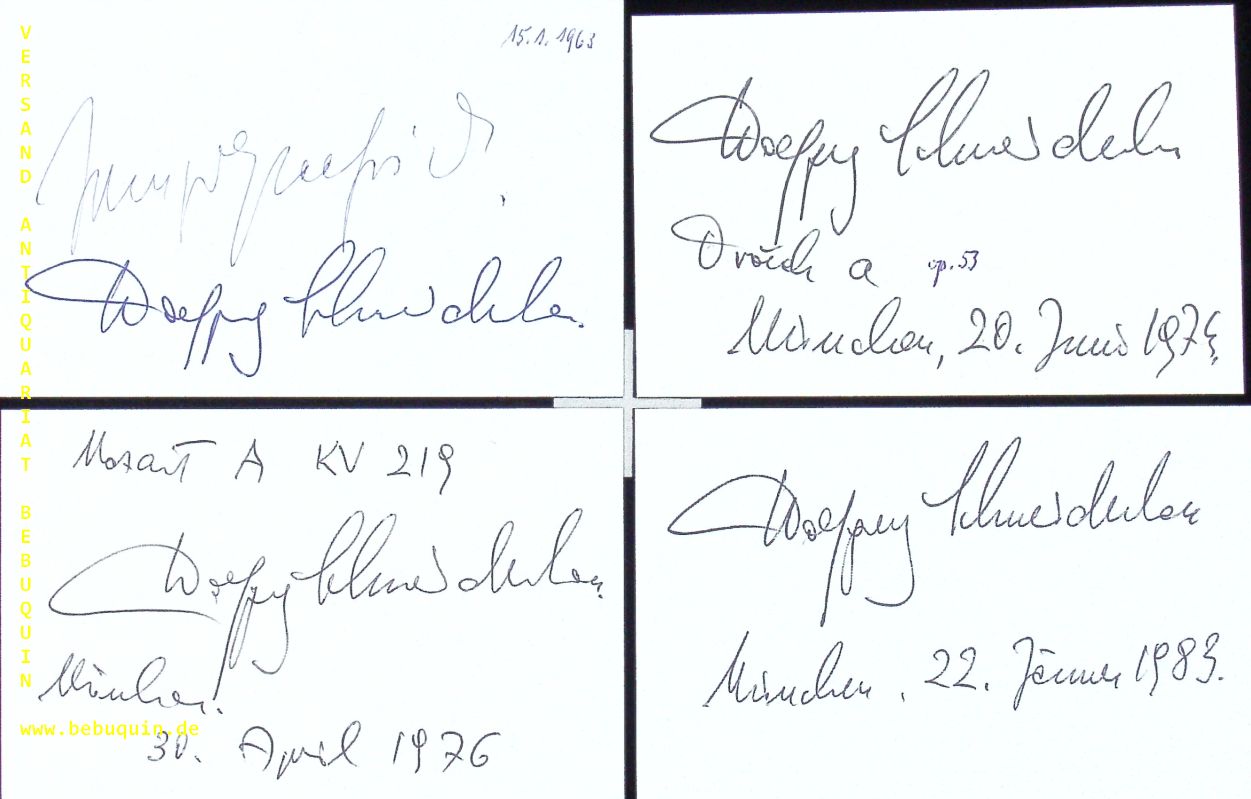 15.1.1963
Wolfgang Schneiderhan
Wolfgang Schneiderhan
Dvořák a op. 53
München, 20. Juni
Mozart A KV 219
Wolfgang Schneiderhan
München.
30. April 1976
Wolfgang Schneiderhan
München, 22. Jänner 1983.
VERSAND ANTIQUARIAT BEBUQUIN
www.bebuquin.de